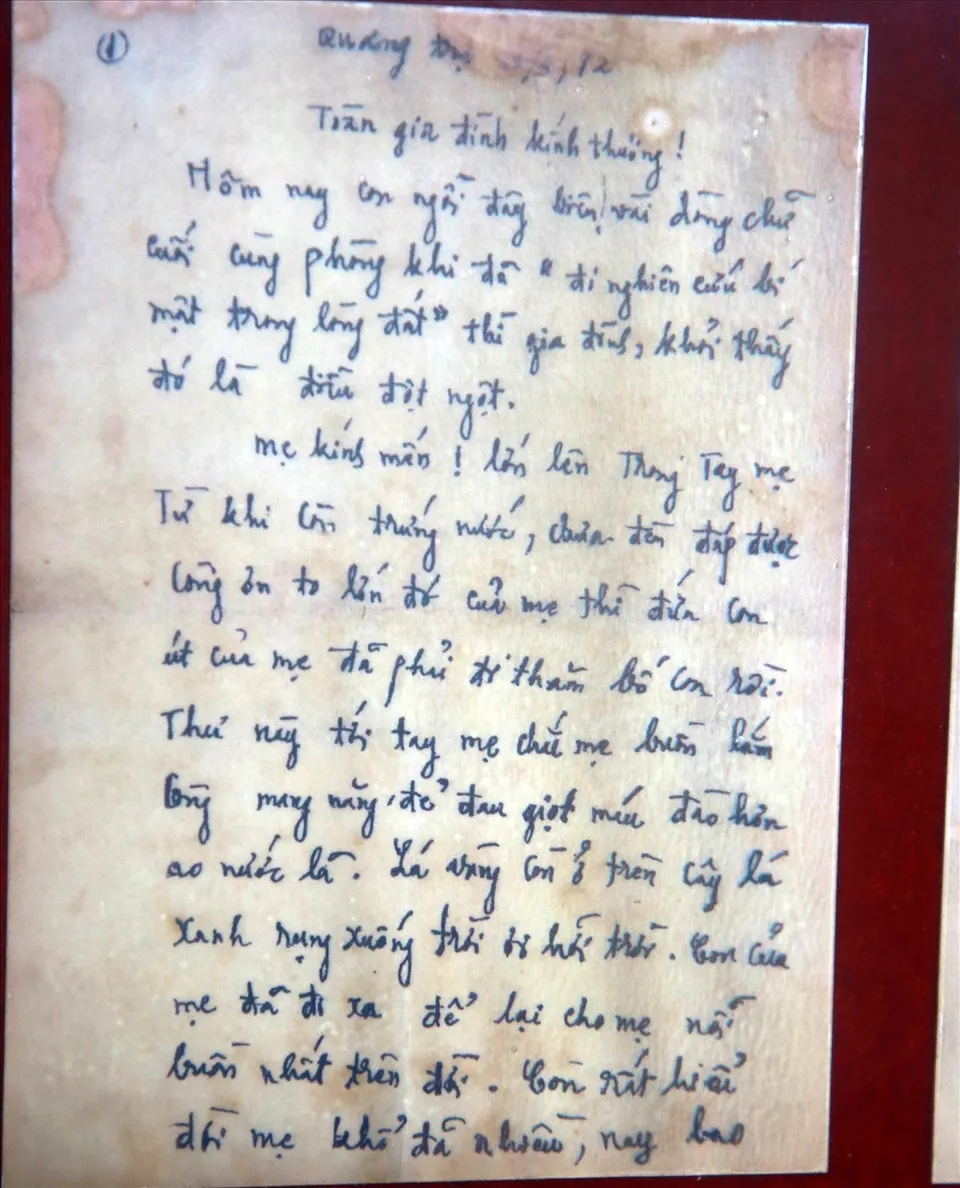 ①
Quảng trị
Toàn gia đình kính thương!
Hôm nay con ngồi đây biên vài dòng chữ
cuối cùng phòng khi đã " đi nghiên cứu bí
mật trong lòng đất" thì gia đình, khỏi thấy
đó là điều đột ngột.
mẹ kính mến! lớn lên Trong Tay mẹ
Từ khi Còn trứng nước, chưa đền đáp được
Công ơn to lớn đó của mẹ thì đứa con
út của mẹ đã phải đi thăm bố con rồi.
Thư này tới tay mẹ chắc mẹ buồn lắm
Công mang nặng đẻ đau giọt máu đào hơn
ao nước lã. Lá vàng Còn ở trên Cây lá
xanh rụng xuống trời ơi hỡi trời. Con của
mẹ đã đi xa để lại cho mẹ nỗi
buồn nhất trên đời. Con rất hiểu
đời mẹ khổ đã nhiều, nay bao